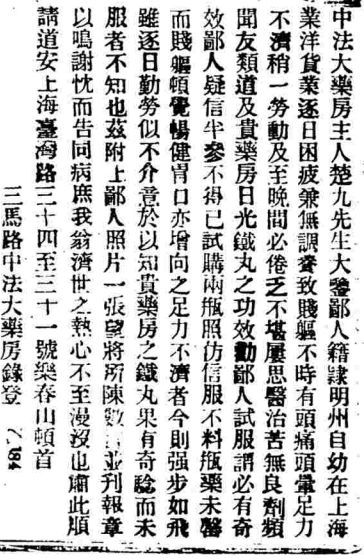 中法大藥房主人楚九先生大鑒鄙人籍隸明州自幼在上海
業洋貨業逐日困疲兼無調養致賤軀不時有頭痛頭暈足力
不濟稍一勞動及至晚間必倦乏不堪屢思醫治苦無良劑頻
聞友類道及貴藥房日光鐵丸之功效勸鄙人試服謂必有奇
效鄙人疑信半參不得已試購兩瓶照仿信服不料瓶藥未罄
而賤軀頓覺暢健胃口亦增向之足力不濟者今則强步如飛
雖逐日勤勞似不介意於以知貴藥房之鐵丸果有奇騐而未
服者不知也茲附上鄙人照片一張望將所陳數 並刊報章
以鳴謝忱而告同病庶我翁濟世之熱心不至漫沒也肅此順
請道安上海臺灣路三十四至三十一號樂春山頓首
三馬路中法大藥房錄登 八 194